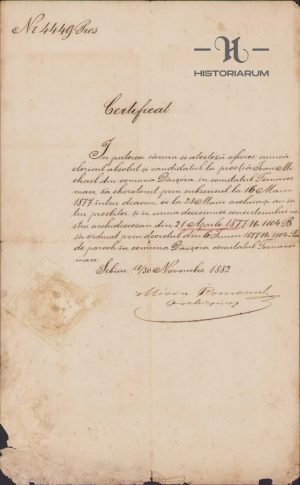 Nr 4449 Pres
HISTORIARUM
Certificat.
In puterea căruia se atestéză oficios cumcă
clericul absolut și candidatul la preoțiă Ioan Mi-
chael din comuna în comitatul
s'a chirotonit prin subscrisul la 16 Maiu
1877 întru diacon, ér la 28 Maiu același an în-
tru presbiter, și în urma decisiunei consistoriului no-
stru archidiecesan din 21 Aprile 1877 Nr. 1104 B
s'a ordinat prin decretul din 6 Iuniu 1877 Nr. 1104
de paroch în comuna comitatul
Sibiiu 18/30 Novembre 1882
Miron Romanul